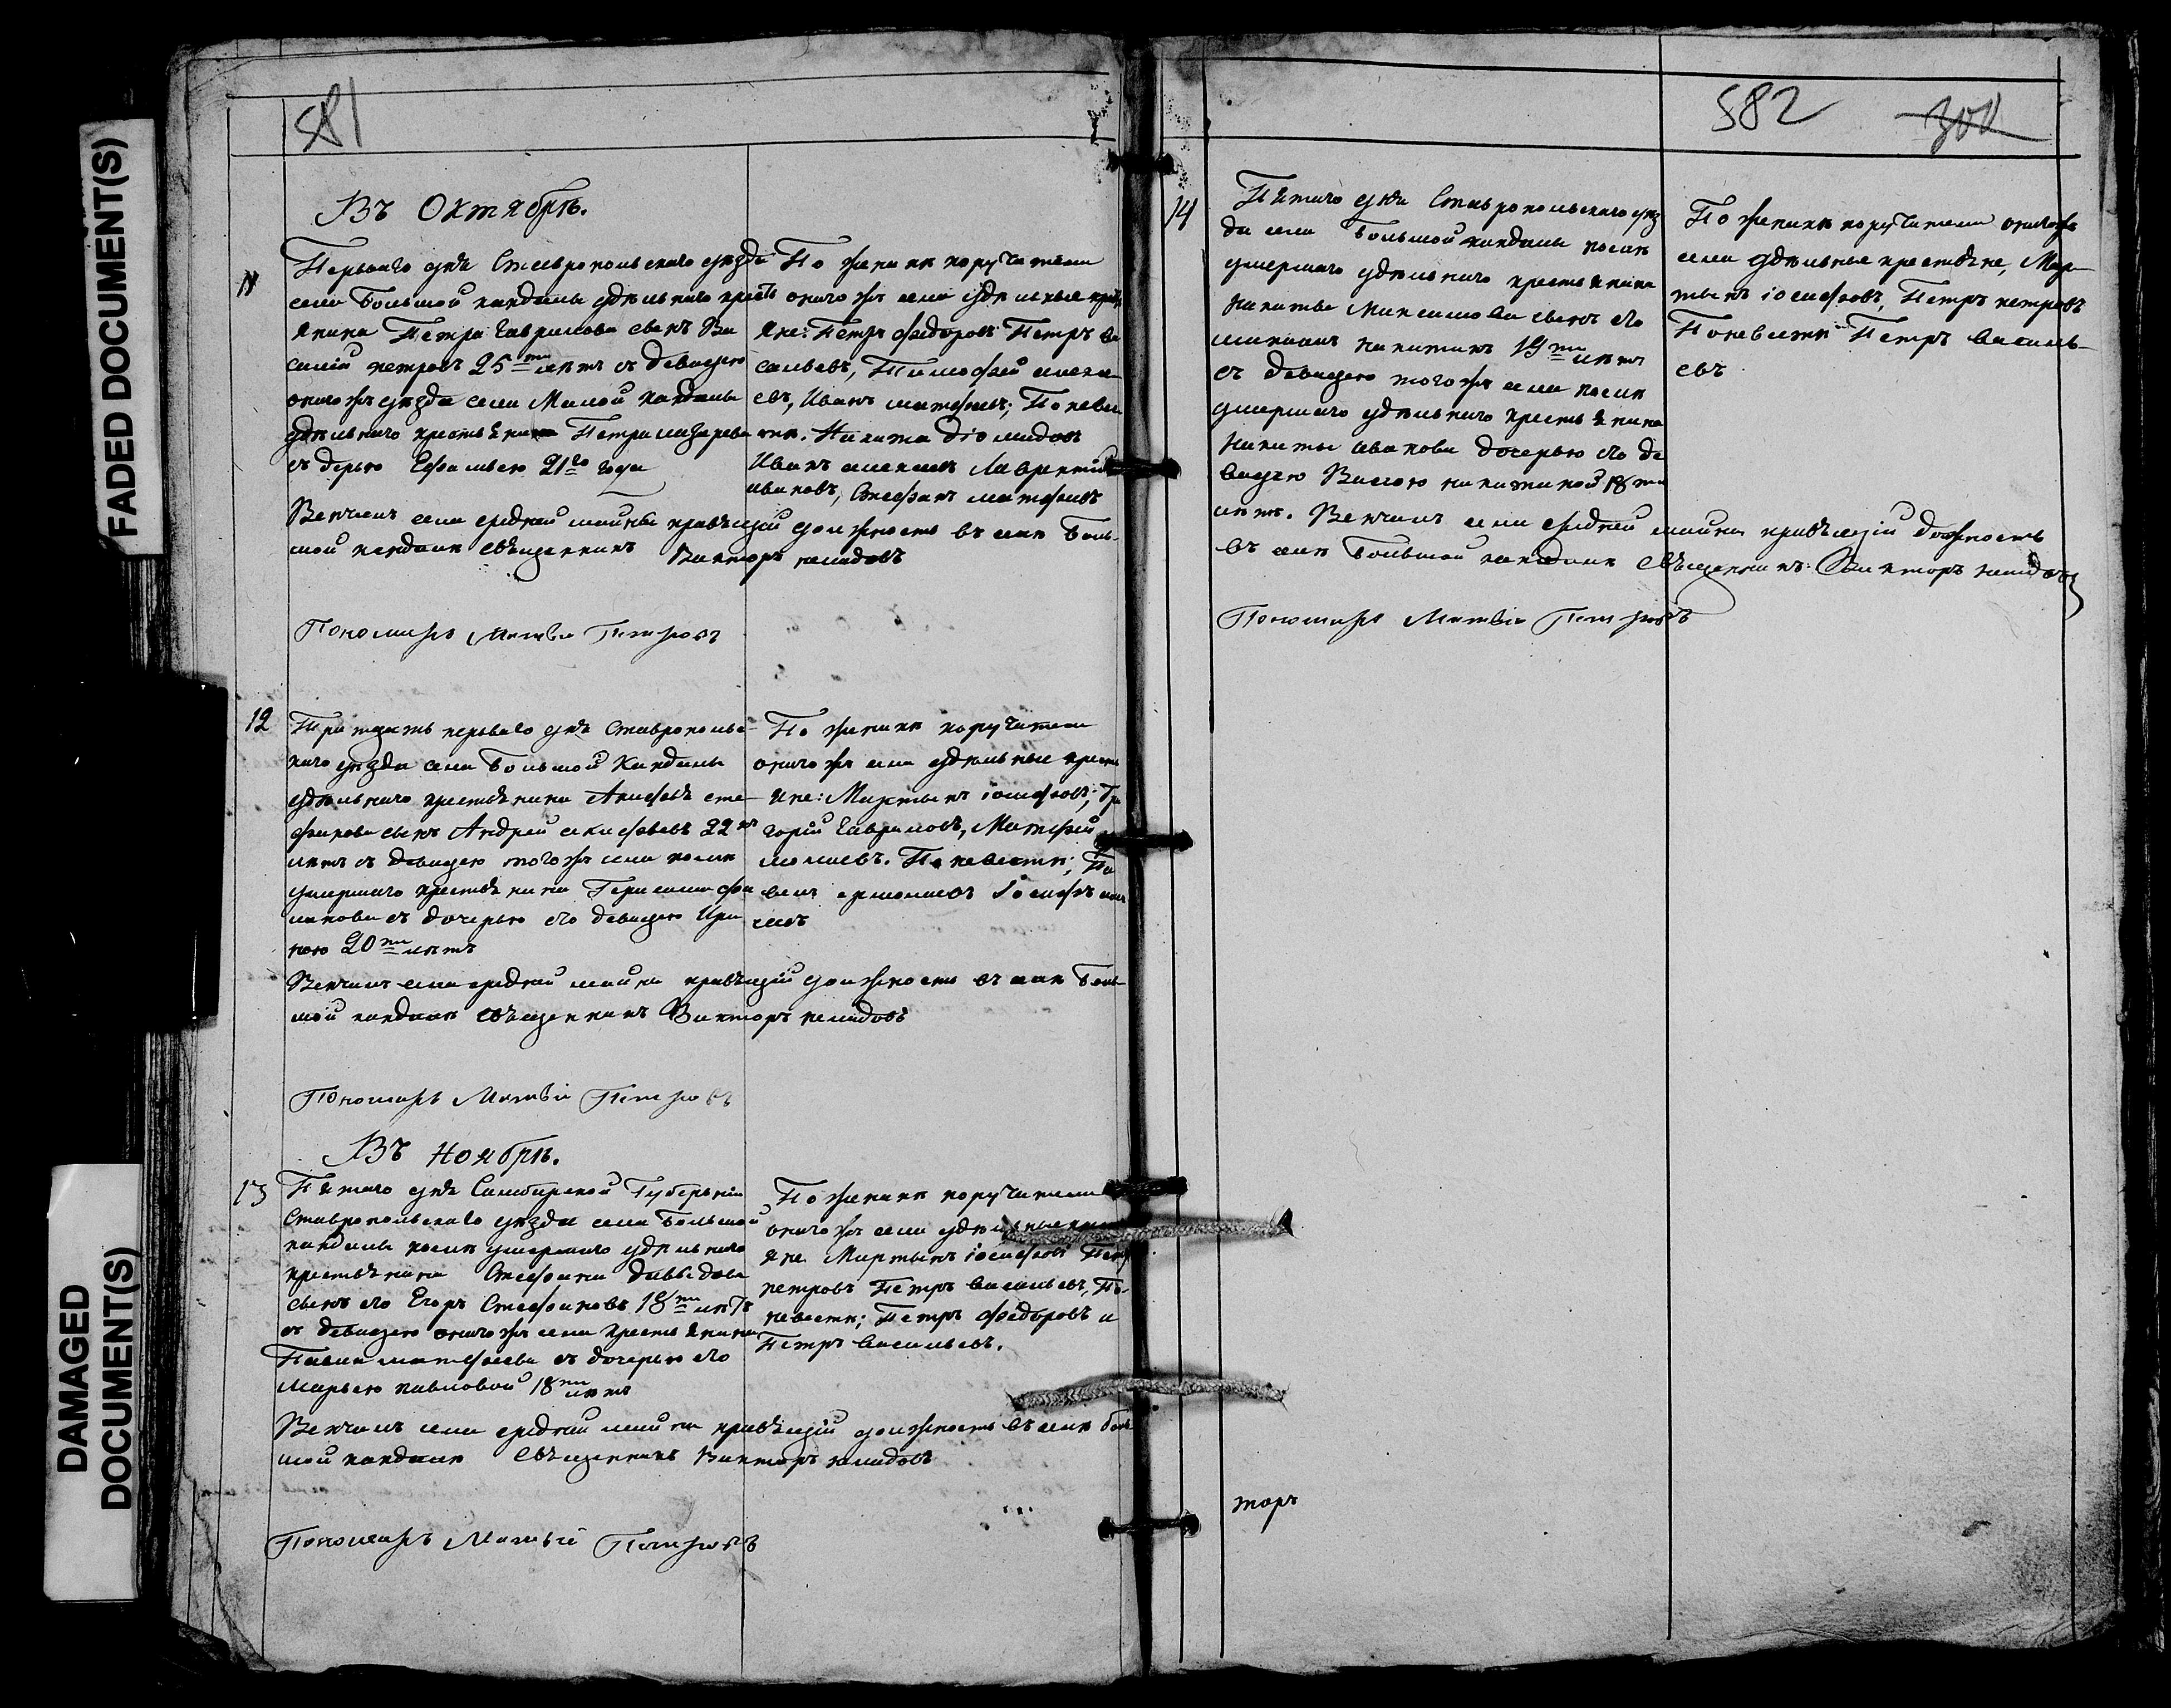 FADED DOCUMENT(S)
DAMAGED
DOCUMENT(S)
581
Въ Октябрѣ.
11
Перваго дня Ставропольскаго уѣзда
села Большой кандалы удѣльнаго кресть
янина Петра Гаврилова сынъ Ва
силій петровъ 25ти лѣтъ съ девицею
онагожъ уѣзда села Малой кандалы
удѣльнаго крестьянина Петра лазарева
съ дерью 21го года
Венчалъ села средней майны правящій должность въ селѣ Боль-
шой кандалѣ священникъ Викторъ
Пономарь Матвѣй Петровъ
По женихѣ поручители
онагожъ села удѣльные кресть
яне: Петръ федоровъ Петръ ва
сильевъ, Тимофей алекѣ
евъ, Иванъ матфеевъ; По невѣ
стѣ. Никита діомидовъ
Иванъ алексеевъ Лаврентій
ивановъ, Стефанъ матфеевъ
12
Тритцать перваго дня Ставрополь-
скаго уѣзда села Большой Кандалы
удѣльнаго крестьянина сте-
фанова сынъ Андрей 22хъ
лѣтъ съ девицею тогожъ села послѣ
умершаго крестьянина Герасима
съ дочерью его девицею Ири
ною 20ти лѣтъ
Венчалъ села средней майны правящій должность въ селѣ Боль-
шой кандалѣ священникъ Викторъ
Пономарь Матвѣй Петровъ
По женихѣ поручители
онагожъ села удѣльные кресть
яне: Мартынъ іосифовъ, Гри
горій Гавриловъ, Матфей
По невестѣ; Па
велъ ермолаевъ Іосифъ
Въ Ноябрѣ.
13
Пятаго дня Симбирской Губерніи
Ставропольскаго уѣзда села Большой
кандалы послѣ умершаго удѣльнаго
крестьянина Стефана давыдова
сынъ его Егоръ Стефановъ 18ти лѣтъ
съ девицею онагожъ села крестьянина
Павла матфеева съ дочерью его
марьею павловой 18ти лѣтъ
Венчалъ села средней майны правящій должность въ селѣ боль
шой кандалѣ священникъ Викторъ
Пономарь Матвѣй Петровъ
По женихѣ поручители
онагожъ села удѣльные
яне Мартынъ іосифовъ Петръ
петровъ Петръ васильевъ, По
невестѣ; Петръ федоровъ и
Петръ васильевъ.
582 300
14
Пятаго дня Ставропольскаго уѣз
да села Большой кандалы послѣ
умершаго удѣльнаго крестьянина
никиты максимова сынъ его
никитинъ 19ти лѣтъ
съ девицею тогожъ села послѣ
умершаго удѣльнаго крестьянина
никиты иванова дочерью его де
вицею никитиной 18ти
лѣтъ. Венчалъ села средней майны правящій должность
въ селѣ Большой кандалѣ священникъ Викторъ
Пономарь Матвѣй Петровъ
По женихѣ поручители онагожъ
села удѣльные крестьяне, Мар-
тынъ іосифовъ, Петръ петровъ
По невестѣ Петръ василь-
евъ
торъ